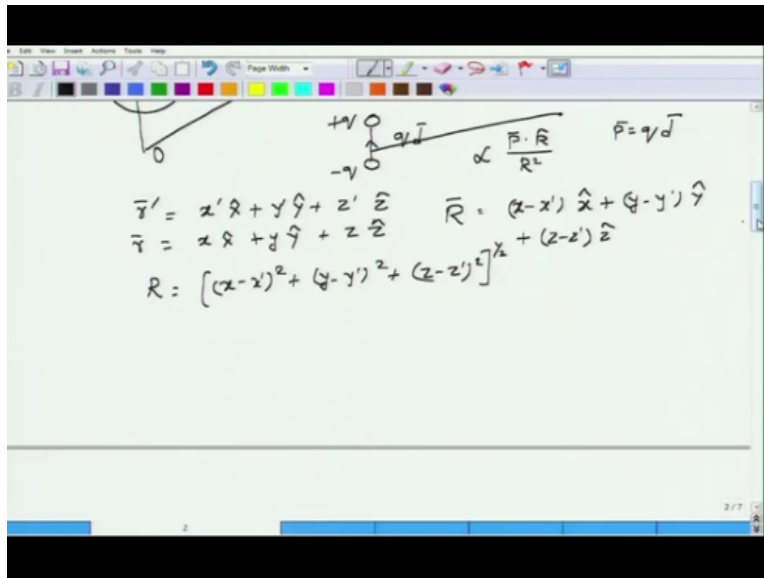 Edit View Insert Actions Tools Help
Page Width
B I
+q
qd̄
-q
∝ (p̄ · R̂)/R²
p̄ = qd̄
O
r̄' = x' x̂ + y' ŷ + z' ẑ
R̄ = (x-x') x̂ + (y-y') ŷ
+ (z-z') ẑ
r̄ = x x̂ + y ŷ + z ẑ
R = [(x-x')² + (y-y')² + (z-z')²]^½
2 / 7
2